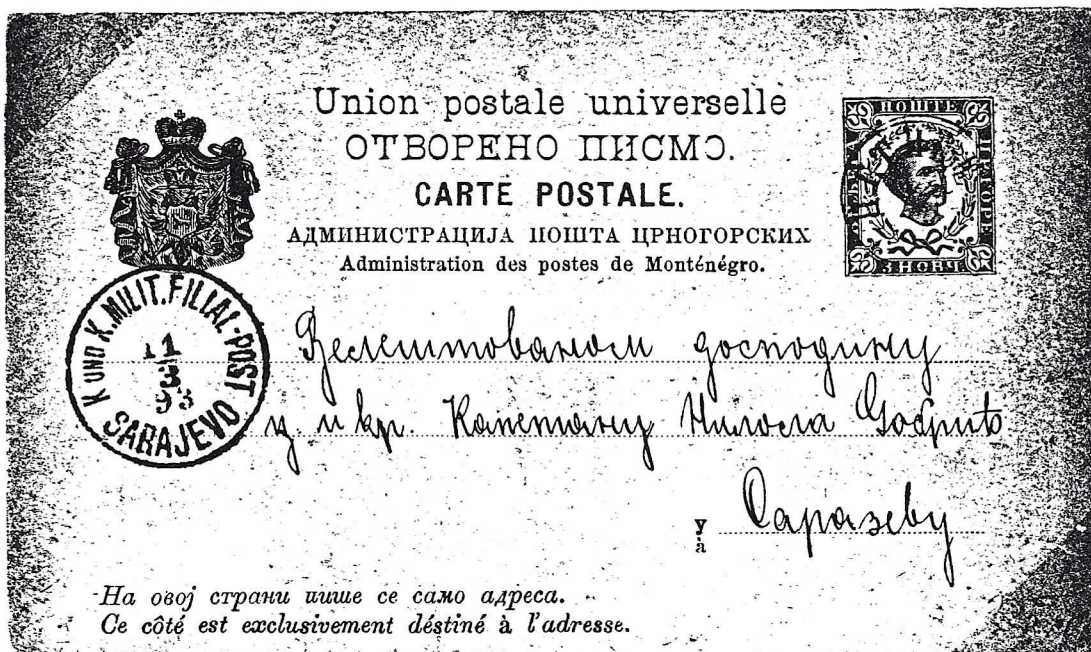 Union postale universelle
ОТВОРЕНО ПИСМО.
CARTE POSTALE.
АДМИНИСТРАЦИЈА ПОШТА ЦРНОГОРСКИХ
Administration des postes de Monténégro.
ПОШТЕ
3 НОВЧ
K UND K. MILIT. FILIAL-POST
11
93
SARAJEVO
господину
ц. и кр. Капетану
у
à
На овој страни пише се само адреса.
Ce côté est exclusivement déstiné à l'adresse.